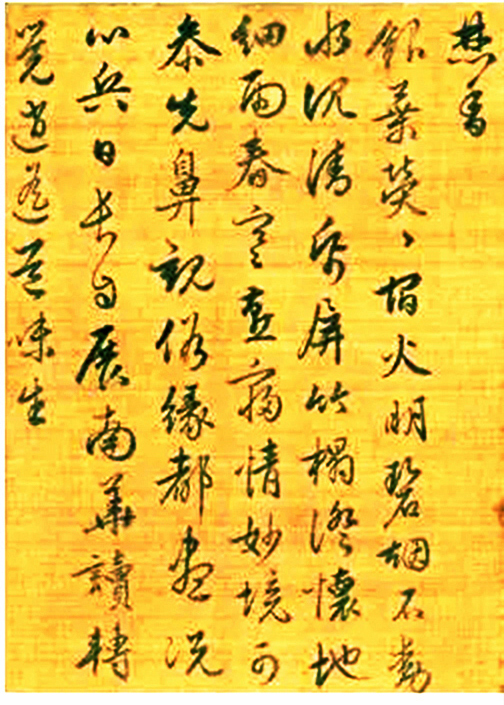 焚香
銀葉熒々宿火明碧烟不動
水沉清帋屏竹榻澄懷地
細雨春寒燕寢情妙境可
參先鼻觀俗緣都盡洗
心兵日長自展南華讀轉
覺逍遙道味生